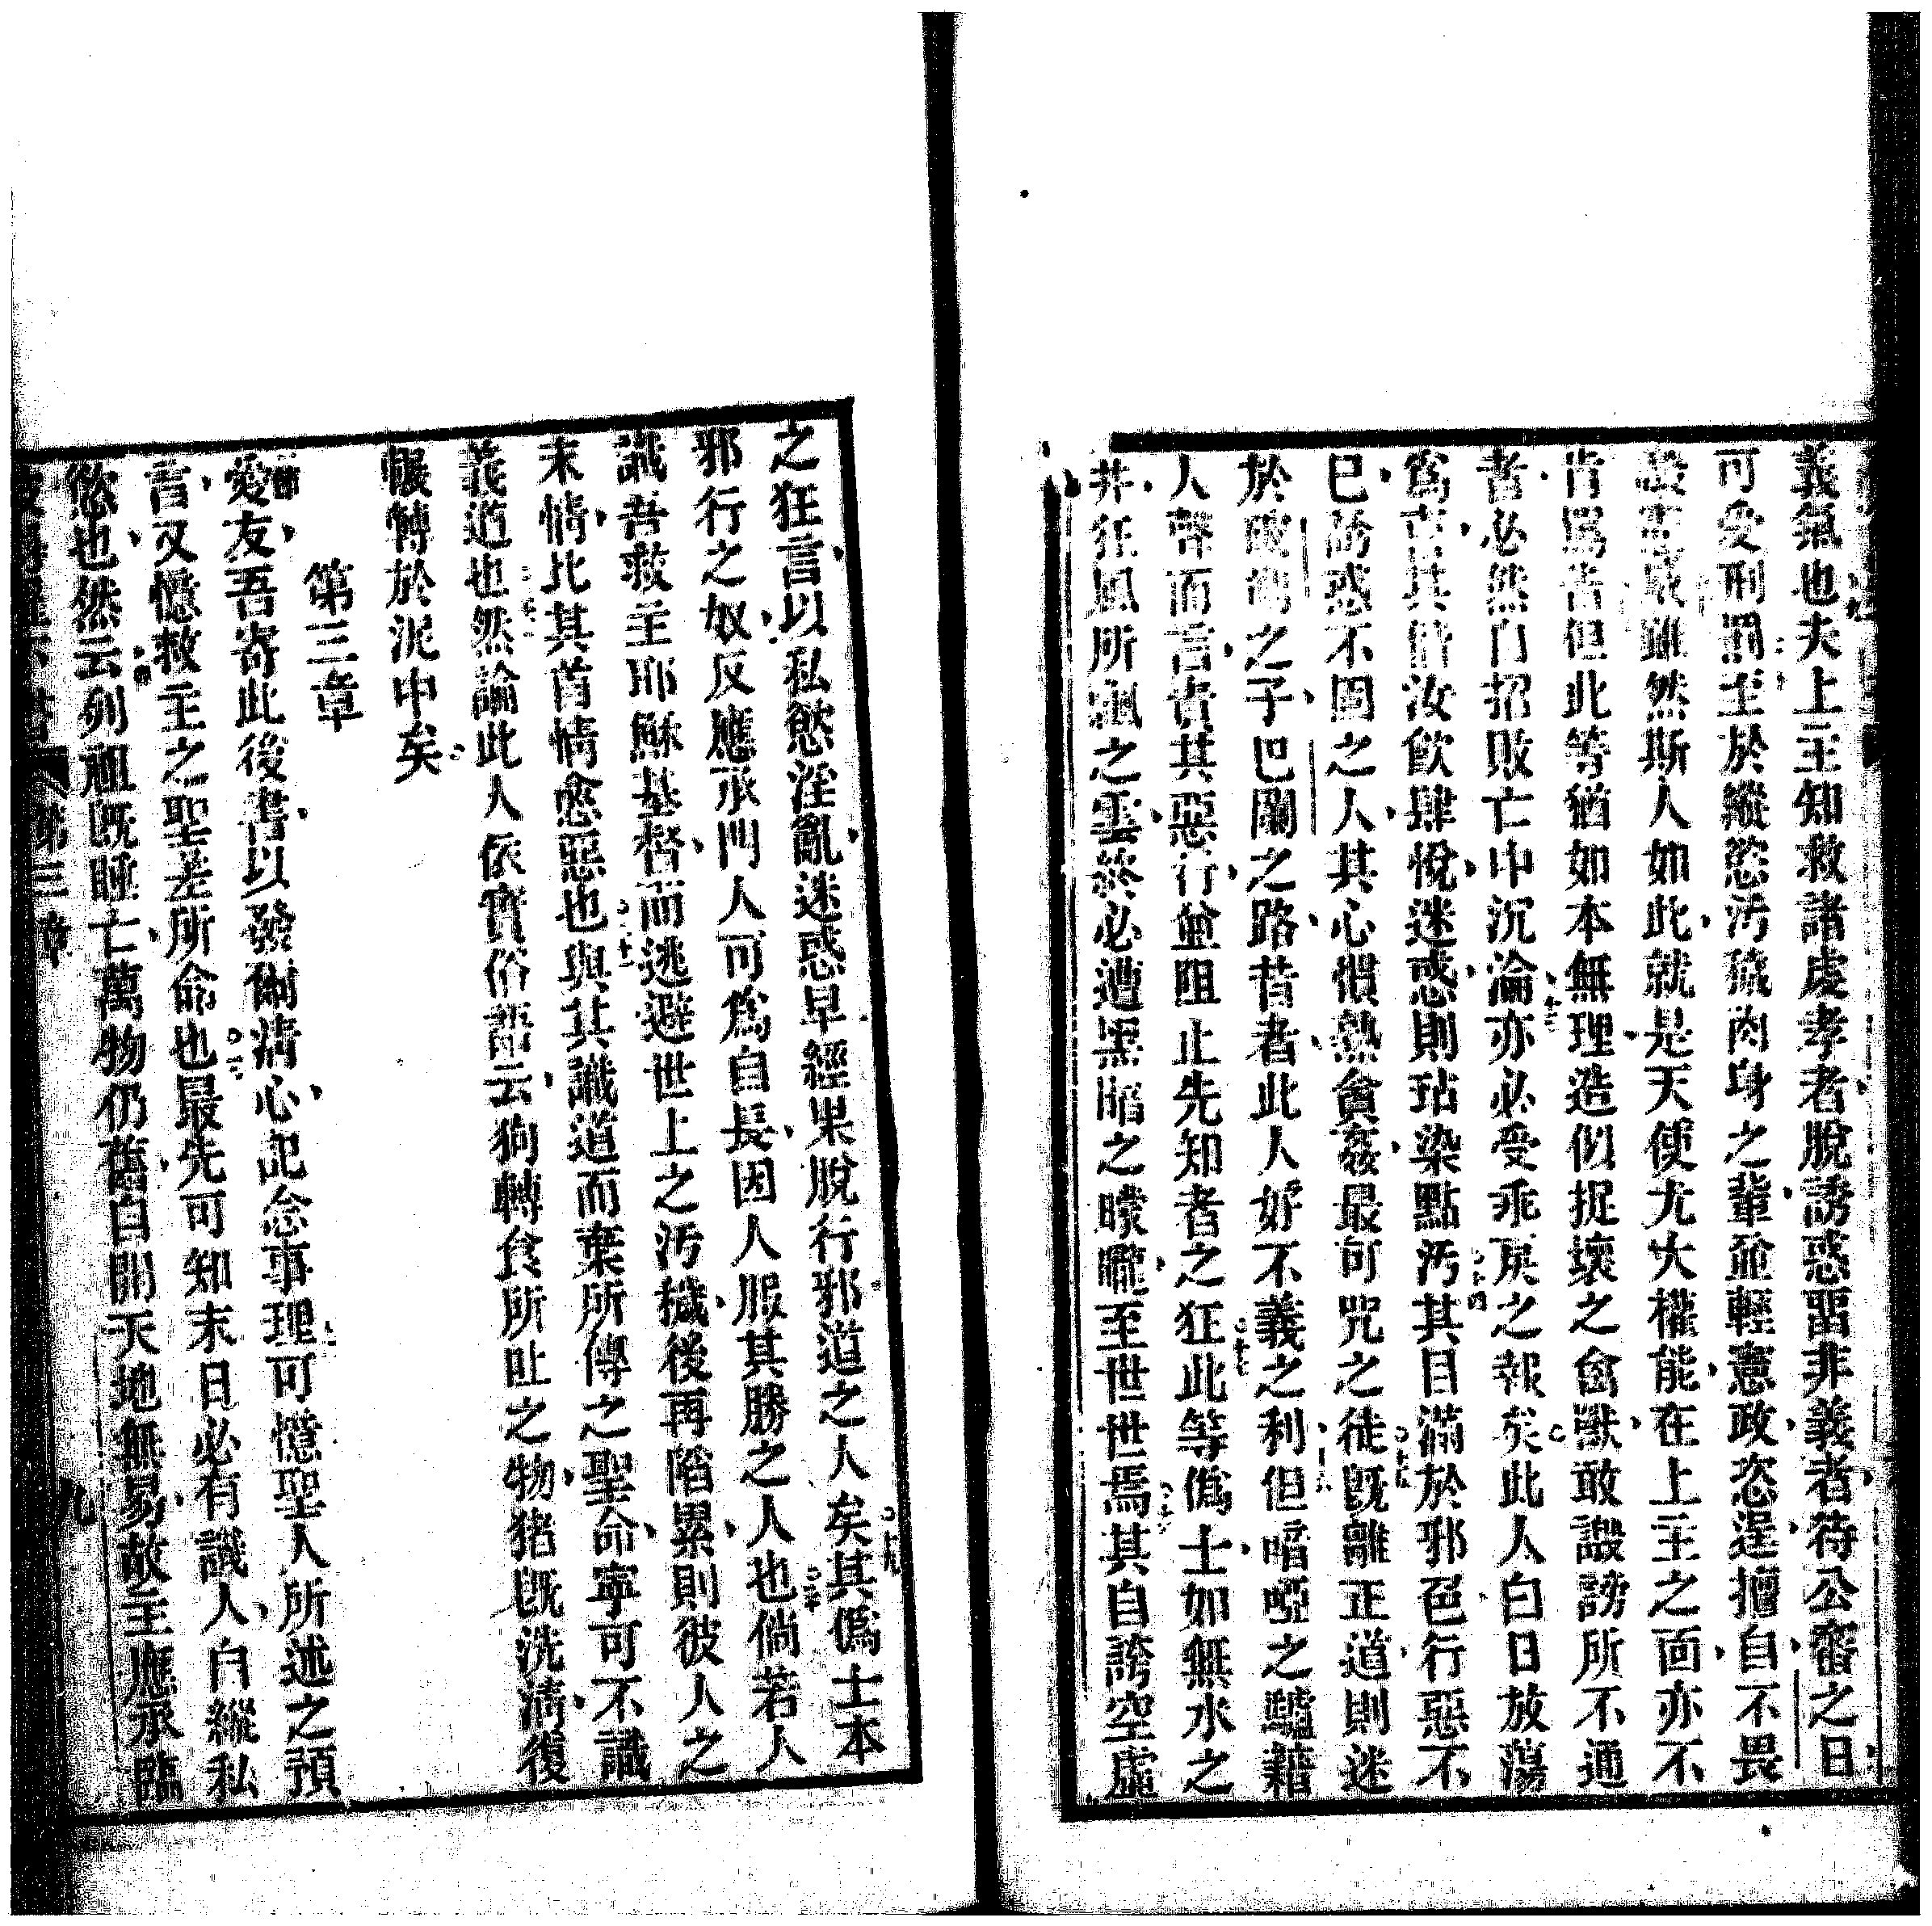 義氣也夫上主知救諸虔孝者脫誘惑畱非義者待公審之日
可受刑罰至於縱慾汚穢肉身之輩並輕憲政恣逞擅自不畏
雖然斯人如此就是天使尤大權能在上主之面亦不
肯爲害但此等猶如本無理造似捉壞之禽獸敢譭謗所不通
者必然自招敗亡中沉淪亦必受乖戾之報矣此人白日放蕩
爲其偕汝飲肆悅迷惑則玷染點汚其目滿於邪色行惡不
已誘惑不固之人其心慣熱貪姦最可咒之徒既離正道則迷
於之子巴蘭之路昔者此人好不義之利但喑啞之驢藉
人聲而言責其惡行並阻止先知者之狂此等僞士如無水之
井狂風所颿之雲終必遭黑暗之曚曨至世世焉其自誇空虛
之狂言以私慾淫亂迷惑早經果脫行邪道之人矣其僞士本
邪行之奴反應承門人可爲自長因人服其勝之人也倘若人
識吾救主耶穌基督而逃避世上之汚穢後再陷累則彼人之
末情比其首情愈惡也與其識道而棄所傳之聖命寧可不識
義道也然論此人依實俗語云狗轉食所吐之物猪既洗淸復
輾轉於泥中矣
第三章
愛友吾寄此後書以發爾淸心記念事理可憶聖人所述之預
言又憶救主之聖差所命也最先可知末日必有譏人自縱私
慾也然云列祖既睡亡萬物仍舊自開天地無易故主應承臨
第三章
九